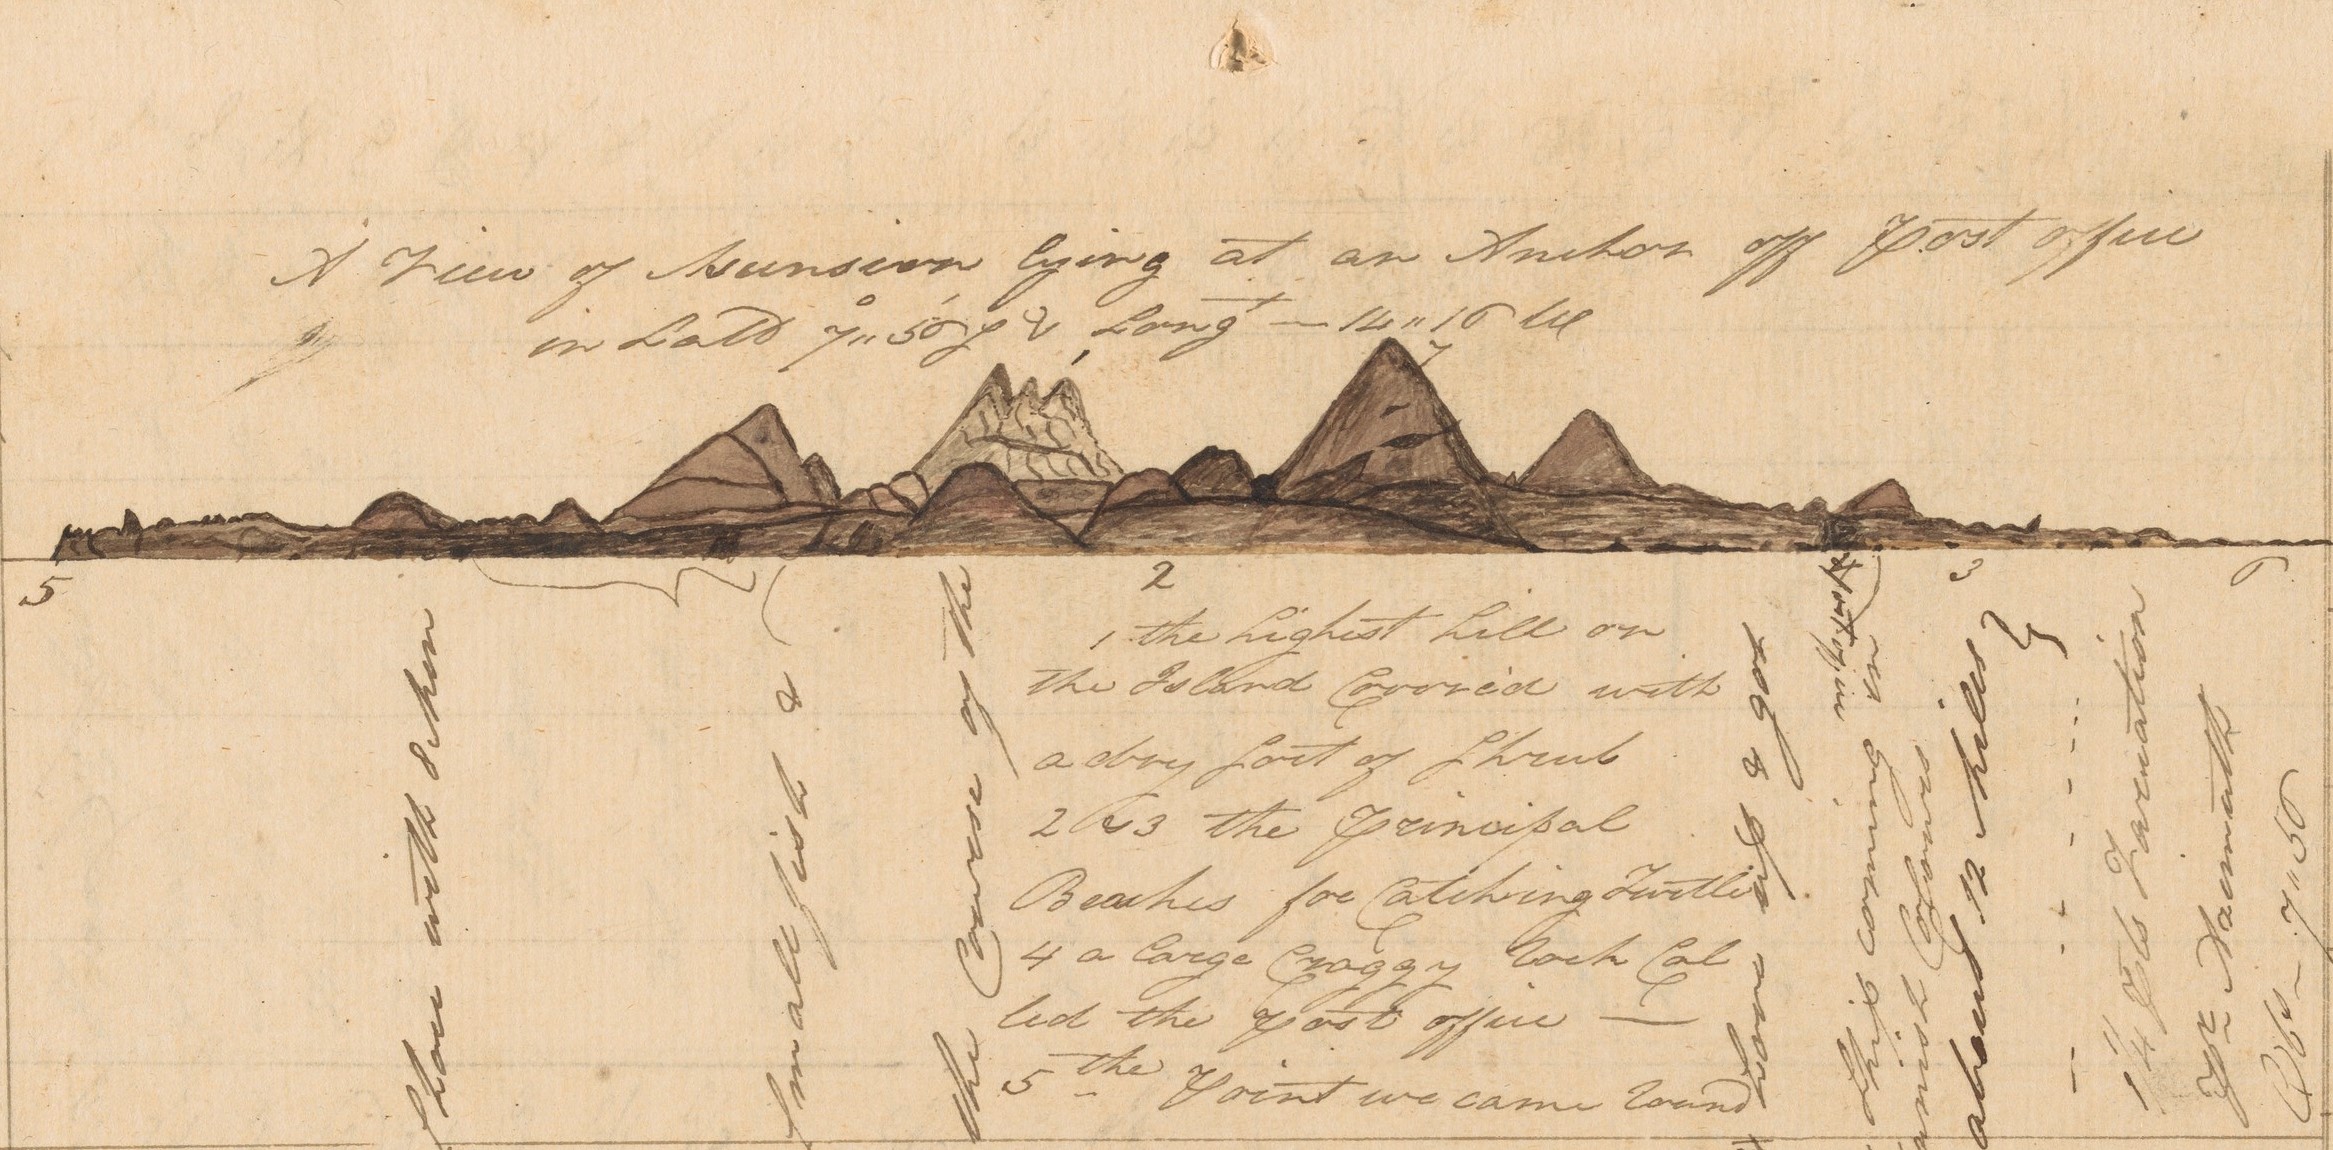 A View of Asunsion lying at an Anchor off Post office
in Latd 7"56 S & Longt — 14"16 W
1
7
5
2
4
3
6
1 the highest hill on
the Island Covored with
a dry sort of shrub
2 & 3 the Principal
Beaches for Catching Turtle
4 a large Craggy Rock Cal
led the Post office —
5 the Point we came round
than with when
small fish &
the Course of the
home up & got
Ship coming in
about 12 Miles
Pr Azemuth
Obs - 7"56